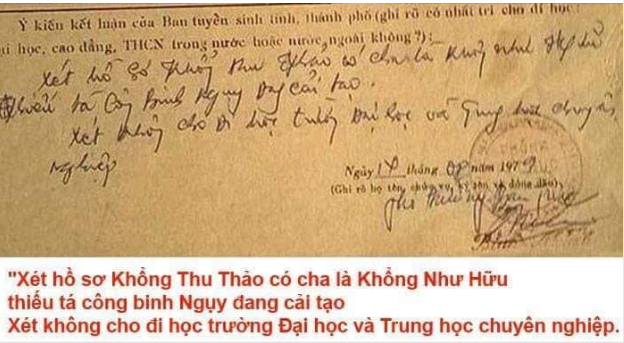 Ý kiến kết luận của Ban tuyển sinh tỉnh, thành phố (ghi rõ có nhất trí cho đi học
ại học, cao đẳng, THCN trong nước hoặc nước ngoài không?):
Xét hồ sơ Khổng Thu Thảo có cha là Khổng Như Hữu
thiếu tá Công Binh Ngụy đang cải tạo.
Xét không cho đi học trường Đại học và Trung học chuyên
nghiệp
Ngày 14 tháng 08 năm 1979
(Ghi rõ họ tên, chức vụ, ký tên và đóng dấu)
"Xét hồ sơ Khổng Thu Thảo có cha là Khổng Như Hữu
thiếu tá công binh Ngụy đang cải tạo
Xét không cho đi học trường Đại học và Trung học chuyên nghiệp.